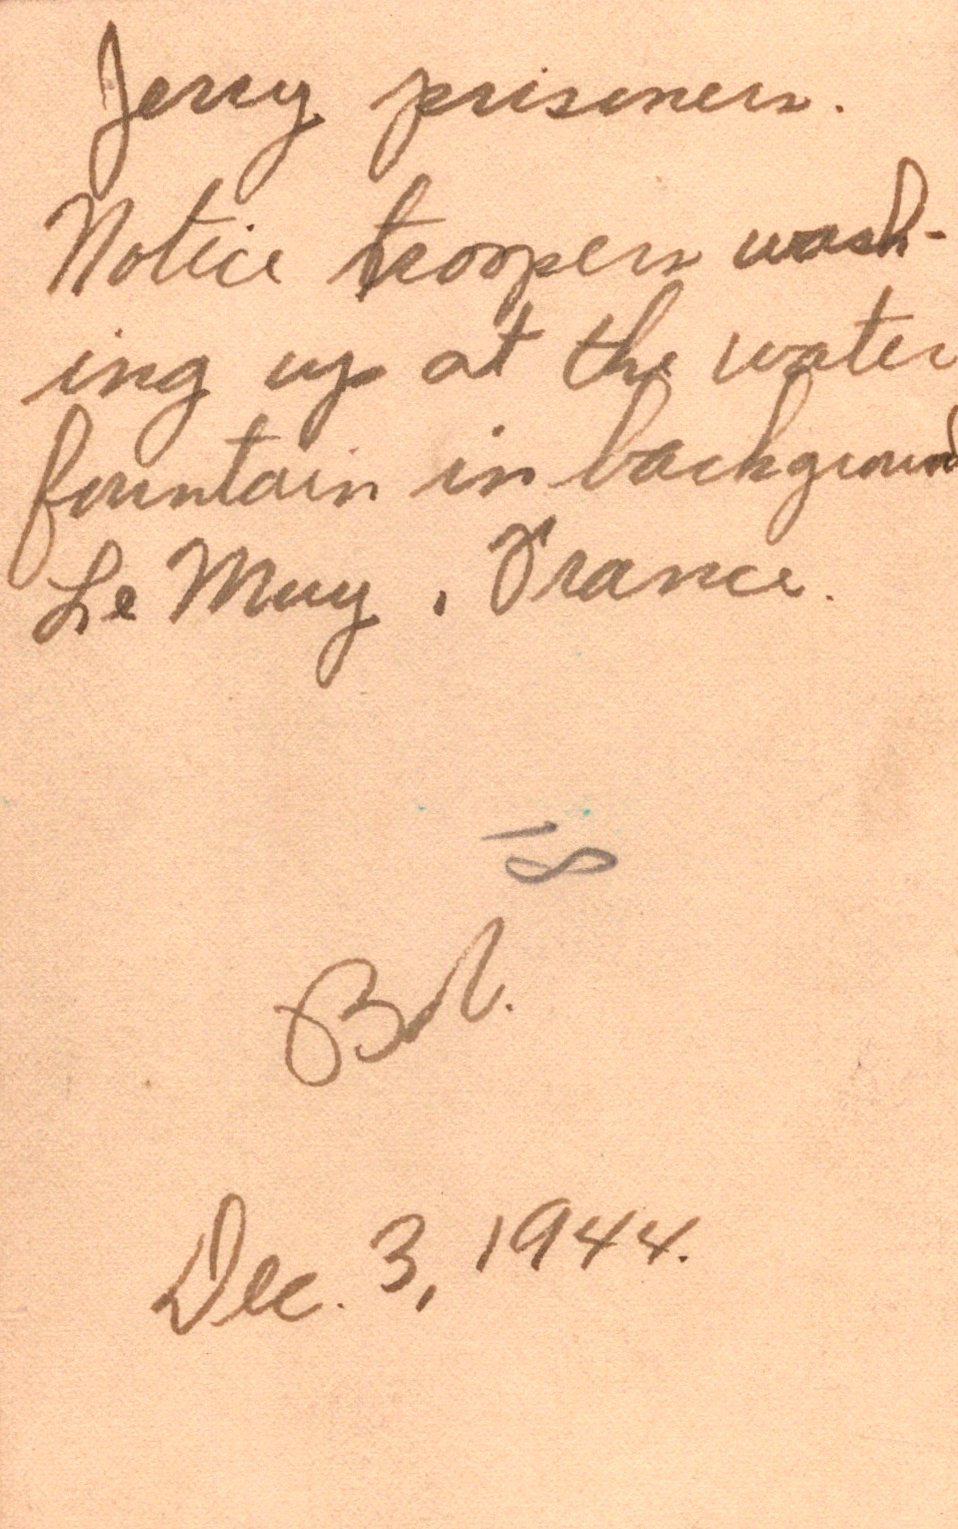 Jerry prisoners.
Notice troopers wash-
ing up at the water
fountain in background
Le Muy, France.
18
Bob.
Dec. 3, 1944.